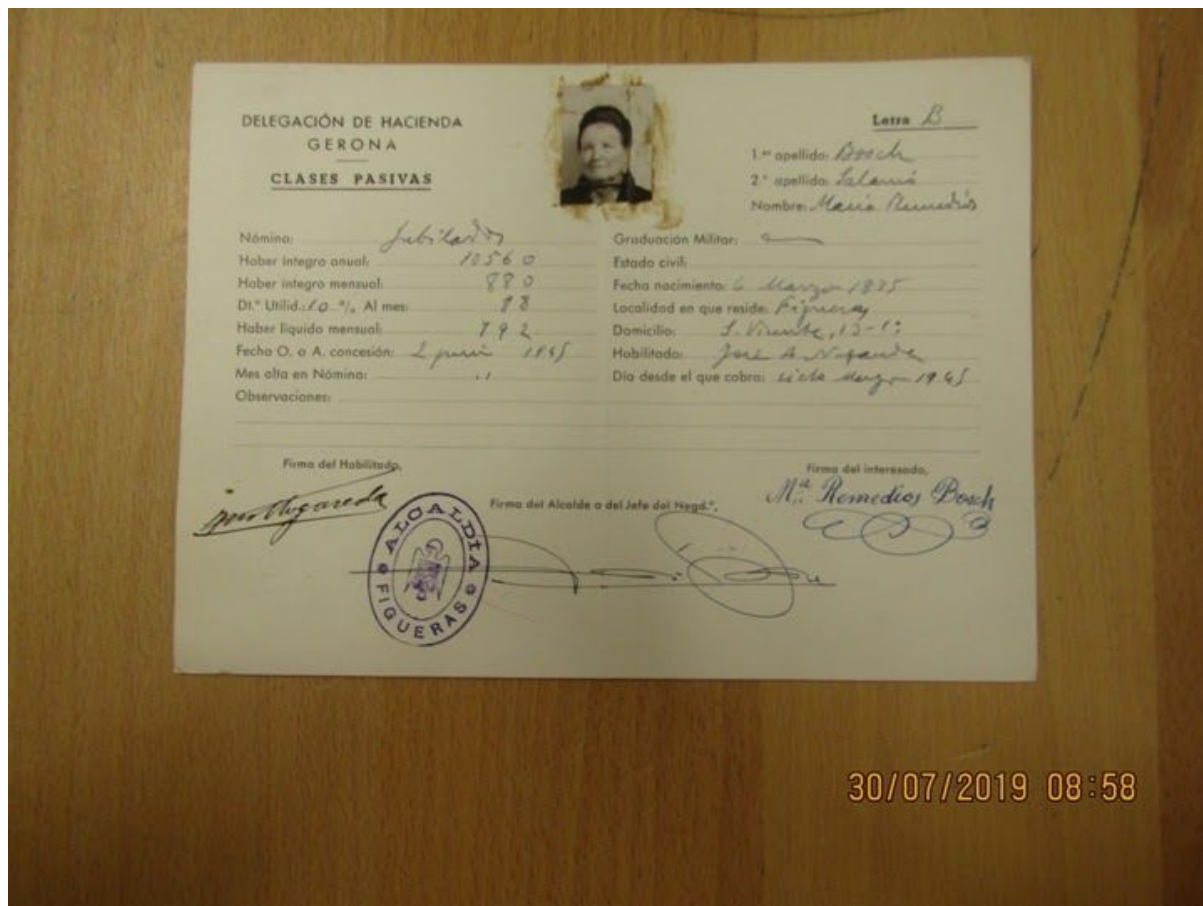 DELEGACIÓN DE HACIENDA
GERONA
CLASES PASIVAS
Letra B
1.er apellido: Bosch
2.º apellido:
Nombre: María Remedios
Nómina: Jubilados
Haber íntegro anual: 10560
Haber íntegro mensual: 880
Dt.º Utilid.: 10 %. Al mes: 88
Haber líquido mensual: 792
Fecha O. o A. concesión: 2 1945
Mes alta en Nómina:
Observaciones:
Graduación Militar:
Estado civil:
Fecha nacimiento: 6 Marzo
Localidad en que reside: Figueras
Domicilio: S. Vicente,
Habilitado: José
Día desde el que cobra: siete Marzo 1945
Firma del Habilitado,
Firma del Alcalde o del Jefe del Negd.º,
Firma del interesado,
M.ª Remedios Bosch
ALCALDÍA
FIGUERAS
30/07/2019 08:58